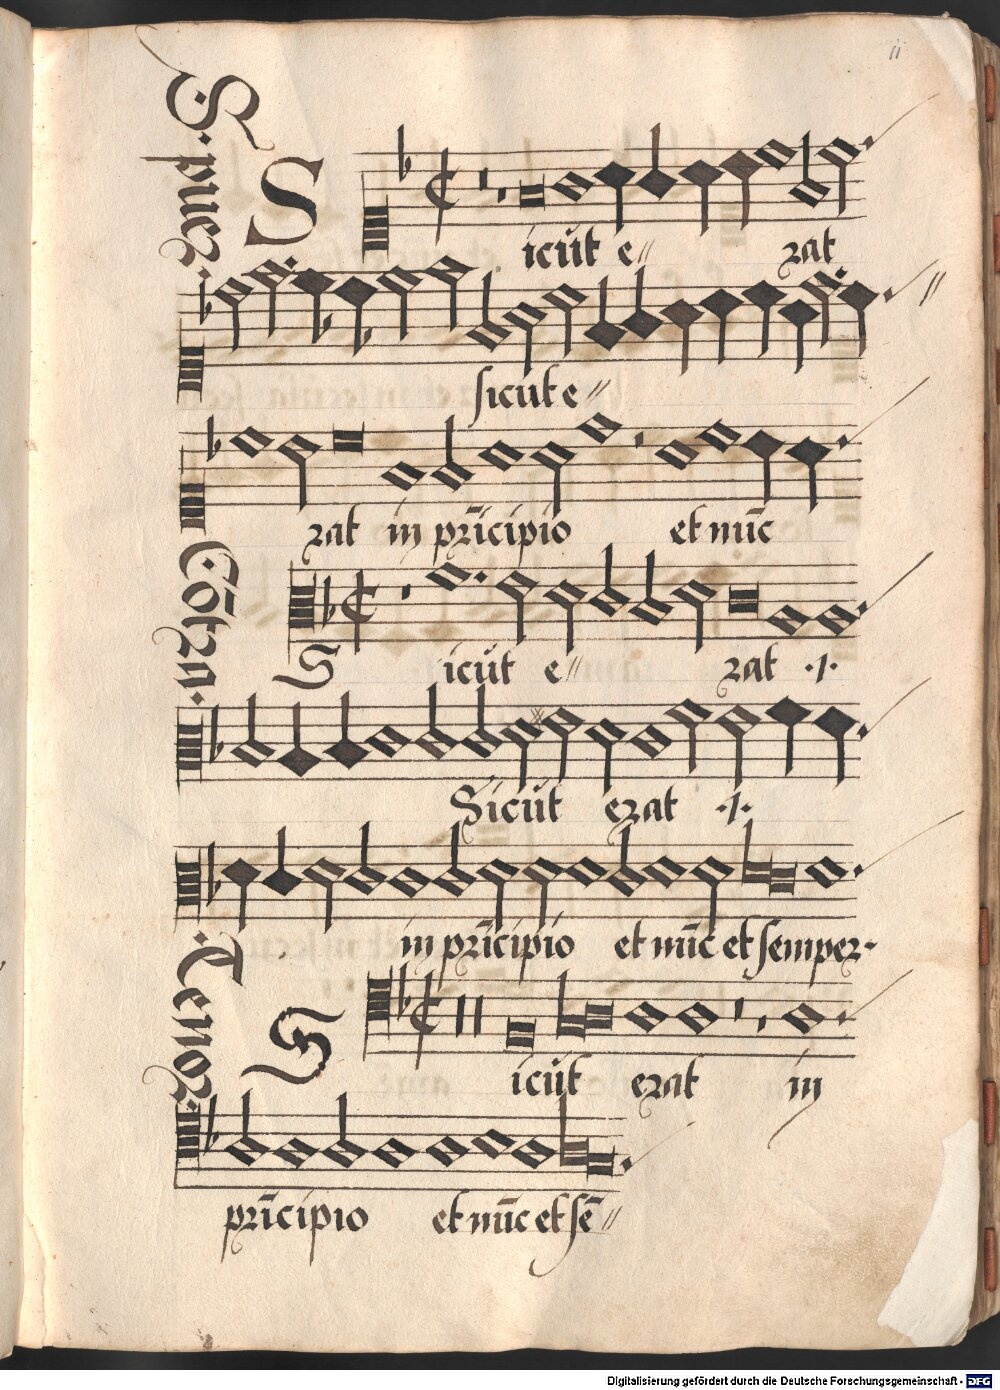 11
S. puer.
Sicut e// rat
sicut e//
rat in prīcipio et nūc
Cōtra.
Sicut e// rat ·/·
Sicut erat ·/·
in prīcipio et nūc et semper·
Tenor.
Sicut erat in
prīcipio et nūc et sē//
Digitalisierung gefördert durch die Deutsche Forschungsgemeinschaft - DFG